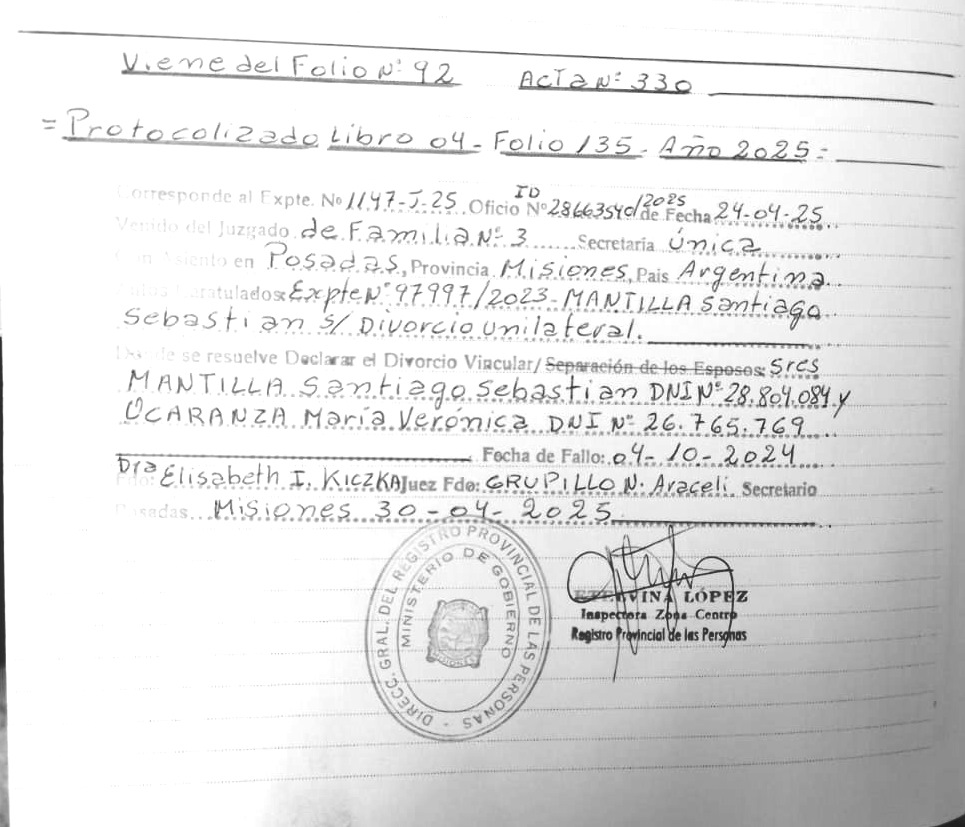 Viene del Folio Nº 92 Acta Nº 330
= Protocolizado Libro 04 - Folio 135 - Año 2025 =
Corresponde al Expte. Nº 1147-J-25 Oficio ID Nº 28663540/2025 de Fecha 24-04-25
Venido del Juzgado de Familia Nº 3 Secretaría Única
Con Asiento en Posadas, Provincia Misiones, País Argentina
Autos Caratulados: Expte Nº 97997/2023 - MANTILLA Santiago
Sebastian S/ Divorcio unilateral.
Donde se resuelve Declarar el Divorcio Vincular/ Separación de los Esposos: Sres
MANTILLA Santiago Sebastian DNI Nº 28.804.084 y
OCARANZA María Verónica DNI Nº 26.765.769
Fecha de Fallo: 04-10-2024
Fdo: Dra Elisabeth I. KICZKA Juez Fdo: GRUPILLO N. Araceli Secretario
Posadas Misiones 30-04-2025
DIRECC. GRAL. DEL REGISTRO PROVINCIAL DE LAS PERSONAS -
MINISTERIO DE GOBIERNO
MISIONES
LÓPEZ
Inspectora Zona Centro
Registro Provincial de las Personas